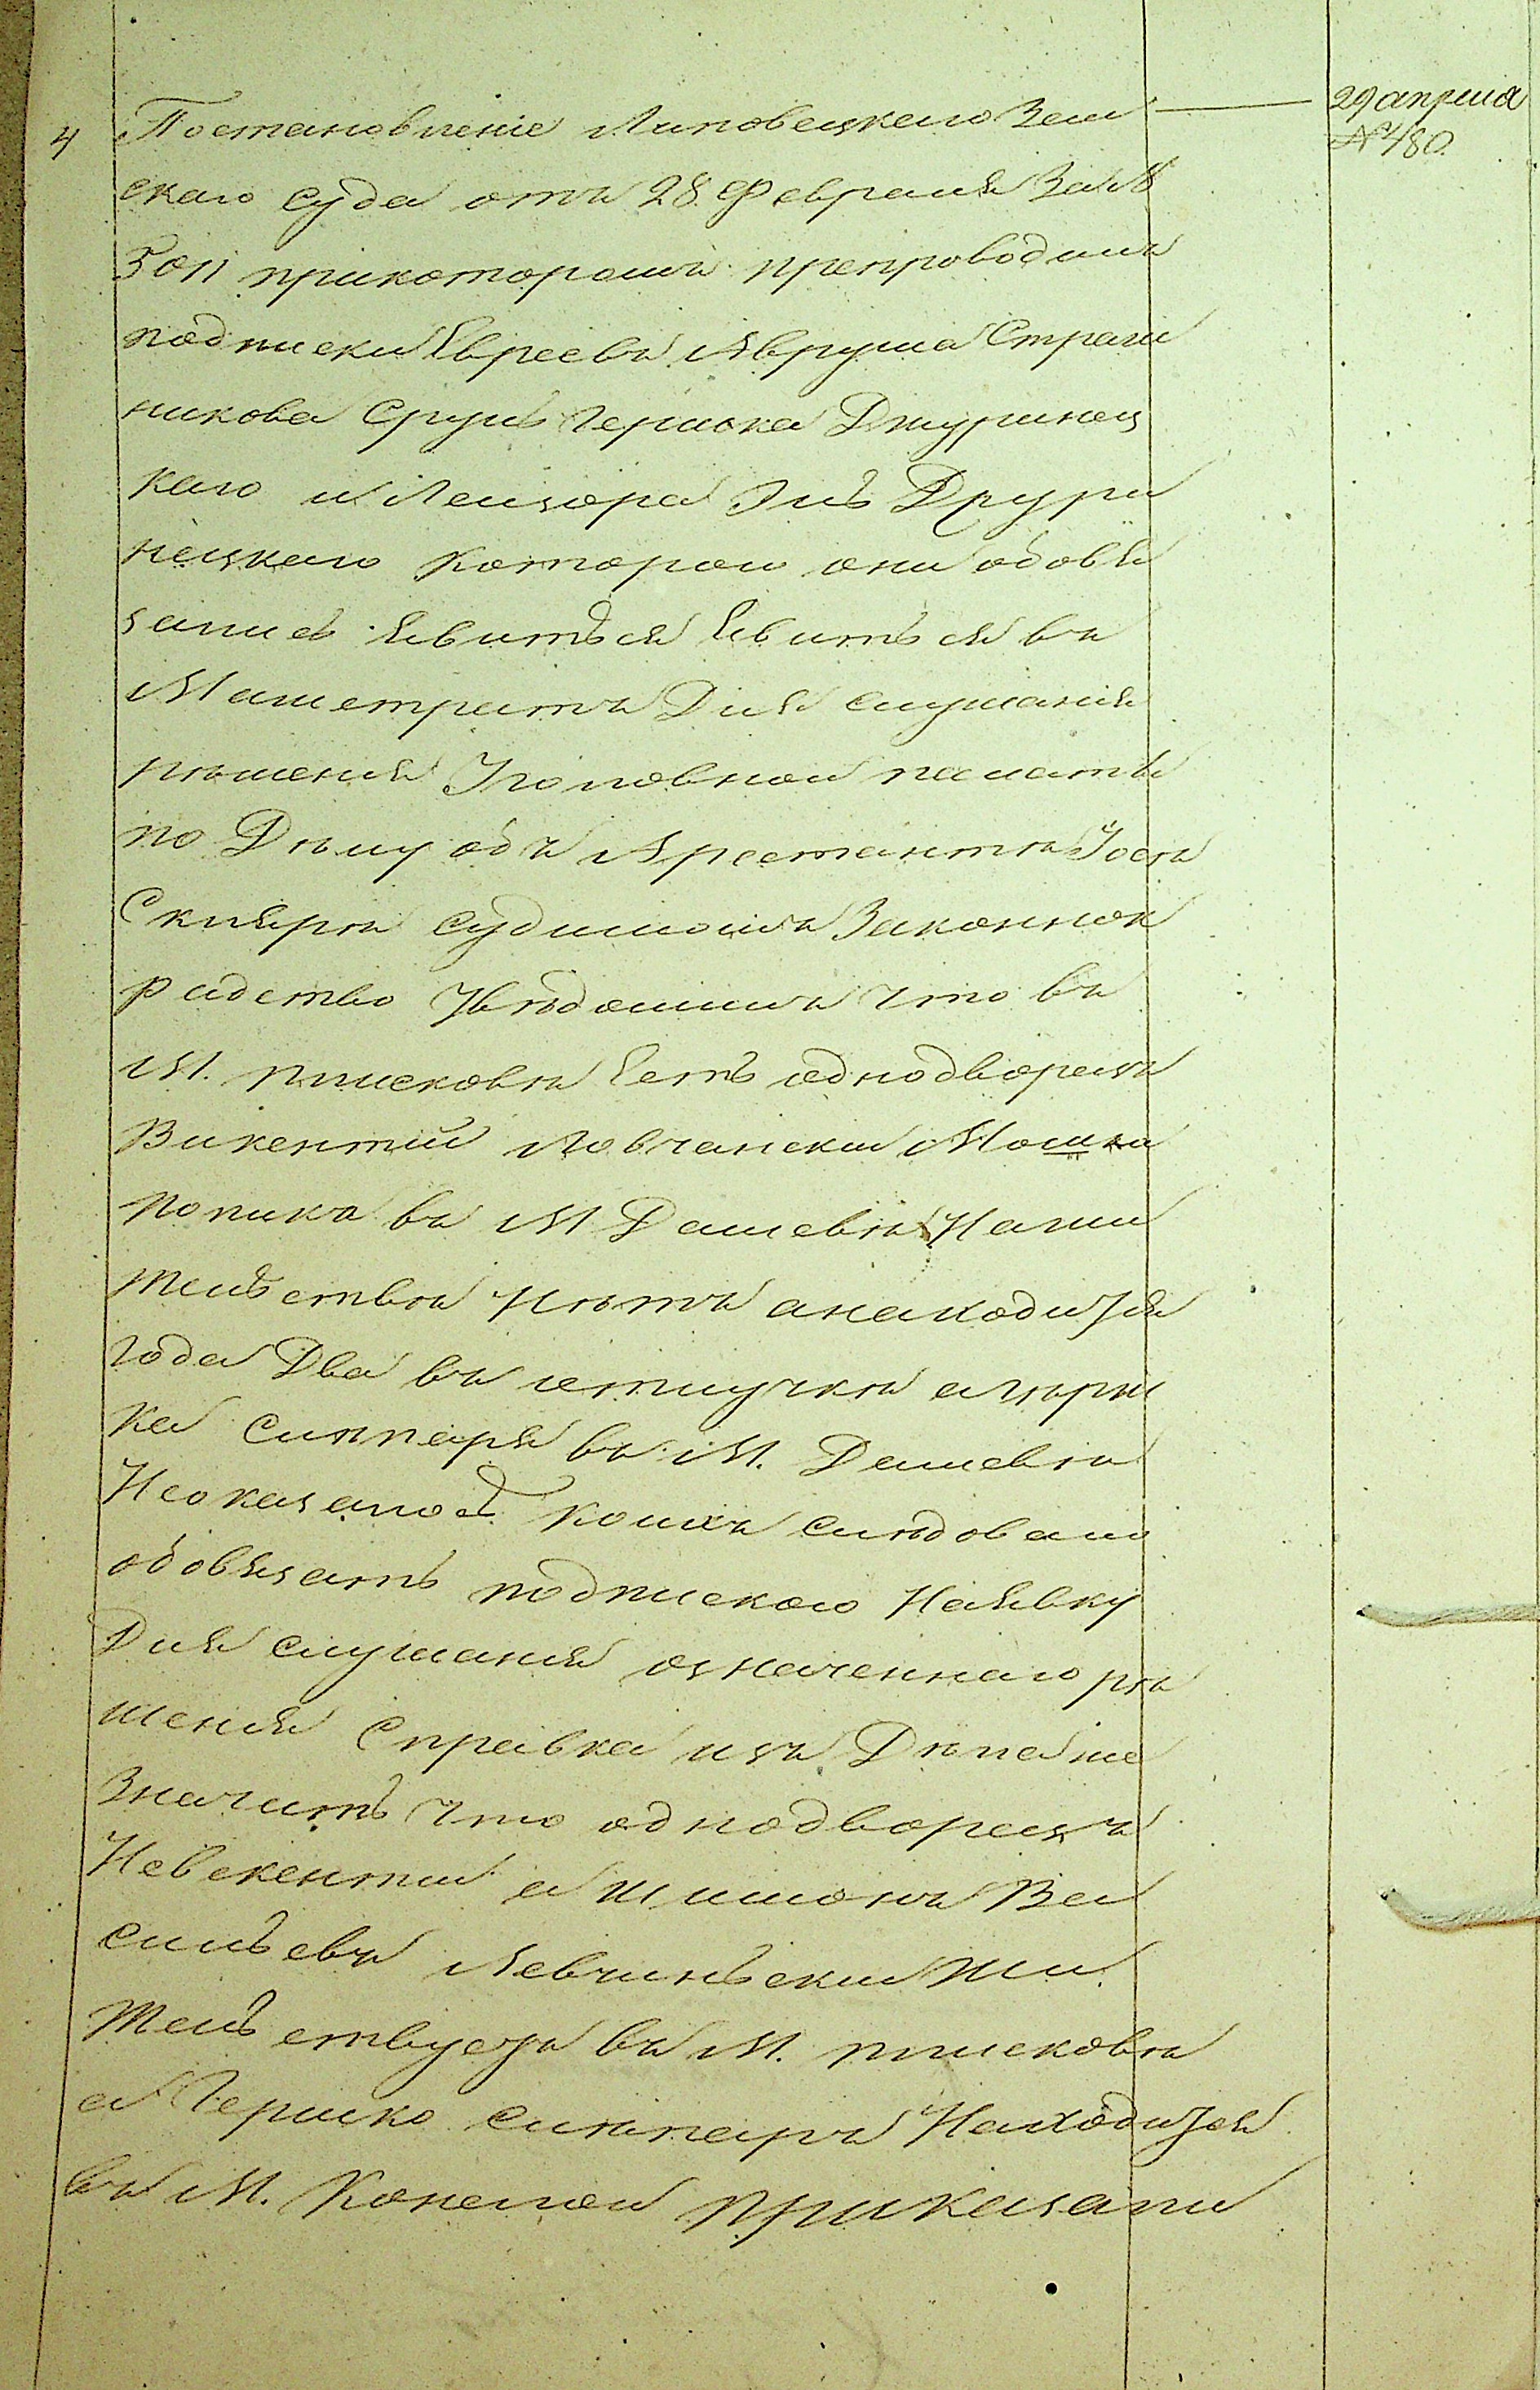 29 апреля
№ 480.
4 Постановленіе Липовецкаго Зем
скаго Суда отъ 28 Февраля За №
5011 прикоторомъ препроводилъ
подписки Евреевъ Аврума Страж
никова Сруль Гершка Джуринец
каго и Лейзора Эль Джури
нецкаго которою они обовя
зались явиться явиться въ
Магистратъ Для слушанія
решенія Уголовной палаты
по Дѣлу объ Арестантѣ Йосѣ
Склярѣ судимомъ За коннок
радство Увѣдомилъ что въ
М. плисковѣ Есть однодворецъ
Викентій Ловчански Мошка
попика въ М Дашевѣ На жи
тельствѣ Нѣтъ а находится
года Два въ отлучкѣ а Герш
ка Слѣпаря въ М. Дашевѣ
Неоказалось коихъ слѣдовало
обовязать подпискою На явку
Для слушанія означеннаго рѣ
шенія Справка изъ Дѣла же
Значитъ что однодворецъ
Невекентій а Шимонъ Ва
сильевъ Левчиньски Жи
тельствуетъ въ М. плисковѣ
а Гершко слѣпаръ Находится
въ М. Конелой Приказали